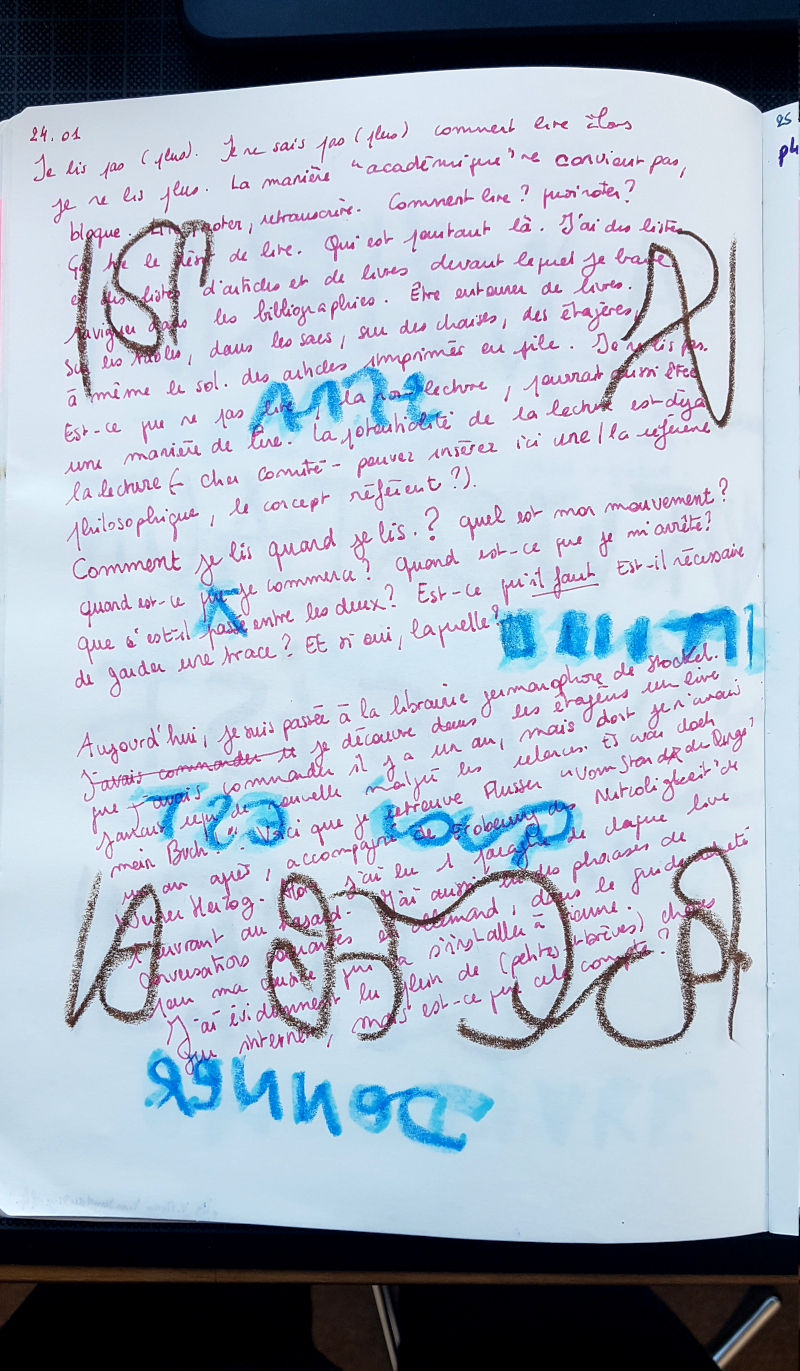 24.01
Je lis pas (plus). Je ne sais pas (plus) comment lire alors
je ne lis plus. La manière "académique" ne convient pas,
bloque. noter, retranscrire. Comment lire? 
le de lire. Qui est pourtant là. J'ai des listes
et des listes d'articles et de livres devant lequel je
naviguer dans les bibliographies. Être entourer de livres.
Sur les tables, dans les sacs, sur des chaises, des étagères,
à même le sol. des articles imprimés en pile. Je ne lis pas.
Est-ce que ne pas lire, la non lecture, pourrait aussi être
une manière de lire. La potentialité de la lecture est déjà
la lecture (- cher comité - pouvez insérez ici une/la référence
philosophique, le concept référent?).
Comment je lis quand je lis.? quel est mon mouvement?
quand est-ce que je commence? Quand est-ce que je m'arrête?
que s'est-il passé entre les deux? Est-ce qu'il faut Est-il nécessaire
de garder une trace? Et si oui, laquelle?
Aujourd'hui, je suis passée à la librairie germanophone de Stockel.
J'avais commander je découvre dans les étagères un livre
que j'avais commander il y a un an, mais dont je n'avais
jamais reçu de nouvelle malgré les relances. Es war doch
mein Buch! Voici que je retrouve Flusser "Vom Stand der Dinge"
un an après, accompagné de Eroberung des Nutzlosigkeit de
Werner Herzog. j'ai lu 1 paragraphe de chaque livre
ouvrant au hasard. J'ai aussi lu des phrases de
conversations courantes en allemand, dans le guide acheté
pour ma qui va s'installer à Vienne.
J'ai évidemment lu plein de (petites et brèves) choses
sur internet, mais est-ce que cela compte?
25